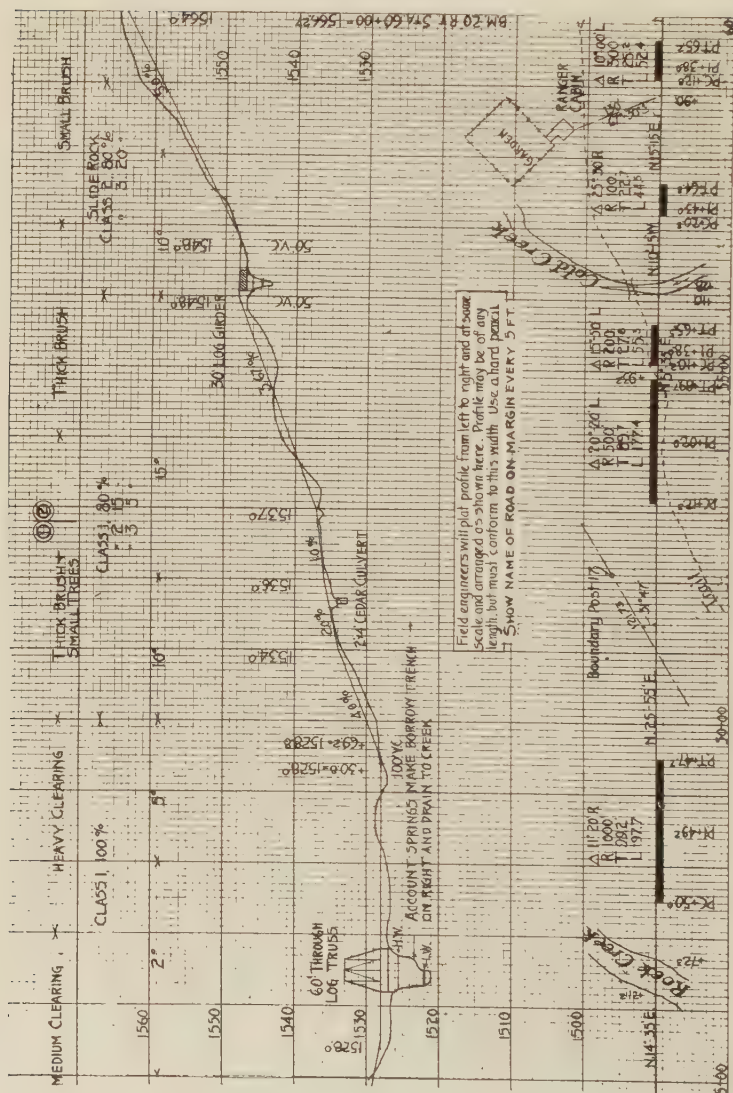 MEDIUM CLEARING
HEAVY CLEARING
THICK BRUSH +
SMALL TREES
THICK BRUSH
SMALL BRUSH
CLASS 1, 100%
CLASS 1, 80%
" 2 15
" 3 5
SLIDE ROCK
CLASS 2, 80%
" 3, 20
2°
5°
10°
15°
10°
1560
1550
1540
1530
1520
1510
1500
1550
1540
1530
60' THROUGH
LOG TRUSS
H.W.
L.W.
ACCOUNT SPRINGS MAKE BORROW TRENCH
ON RIGHT AND DRAIN TO CREEK
100' V.C.
+30.0=1528.0
+69.2=1528.8
4.0%
1534.0
2.0%
1536.0
2'x4' CEDAR CULVERT
1.0%
1537.0
2.67%
30' LOG GIRDER
1548.0
50' V.C.
1548.0
50' V.C.
1564.0
BM 20' RT STA 60+00=1566.27
Field engineers will plat profile from left to right and at same
scale and arranged as shown here. Profile may be of any
length, but must conform to this width. Use a hard pencil
SHOW NAME OF ROAD ON MARGIN EVERY 5 FT.
Rock Creek
N14°35'E
Δ 11°20'R
R 1000'
T 99.2
L 197.7
PC+50.0
PI+49.2
PT+47.7
50+00
N.25°55'E
Boundary Post 17
Trail
Δ 20°20'L
R 500'
T 89.7
L 177.4
N5°35'E
Δ 15°50'L
R 200'
T 27.8
L 55.3
55+00
N10°15'W
Cold Creek
Δ 25°30'R
R 100'
T 22.7
L 44.5
N15°15'E
GARDEN
RANGER
CABIN
Δ 10°00'L
R 300
T 26.2
L 52.4